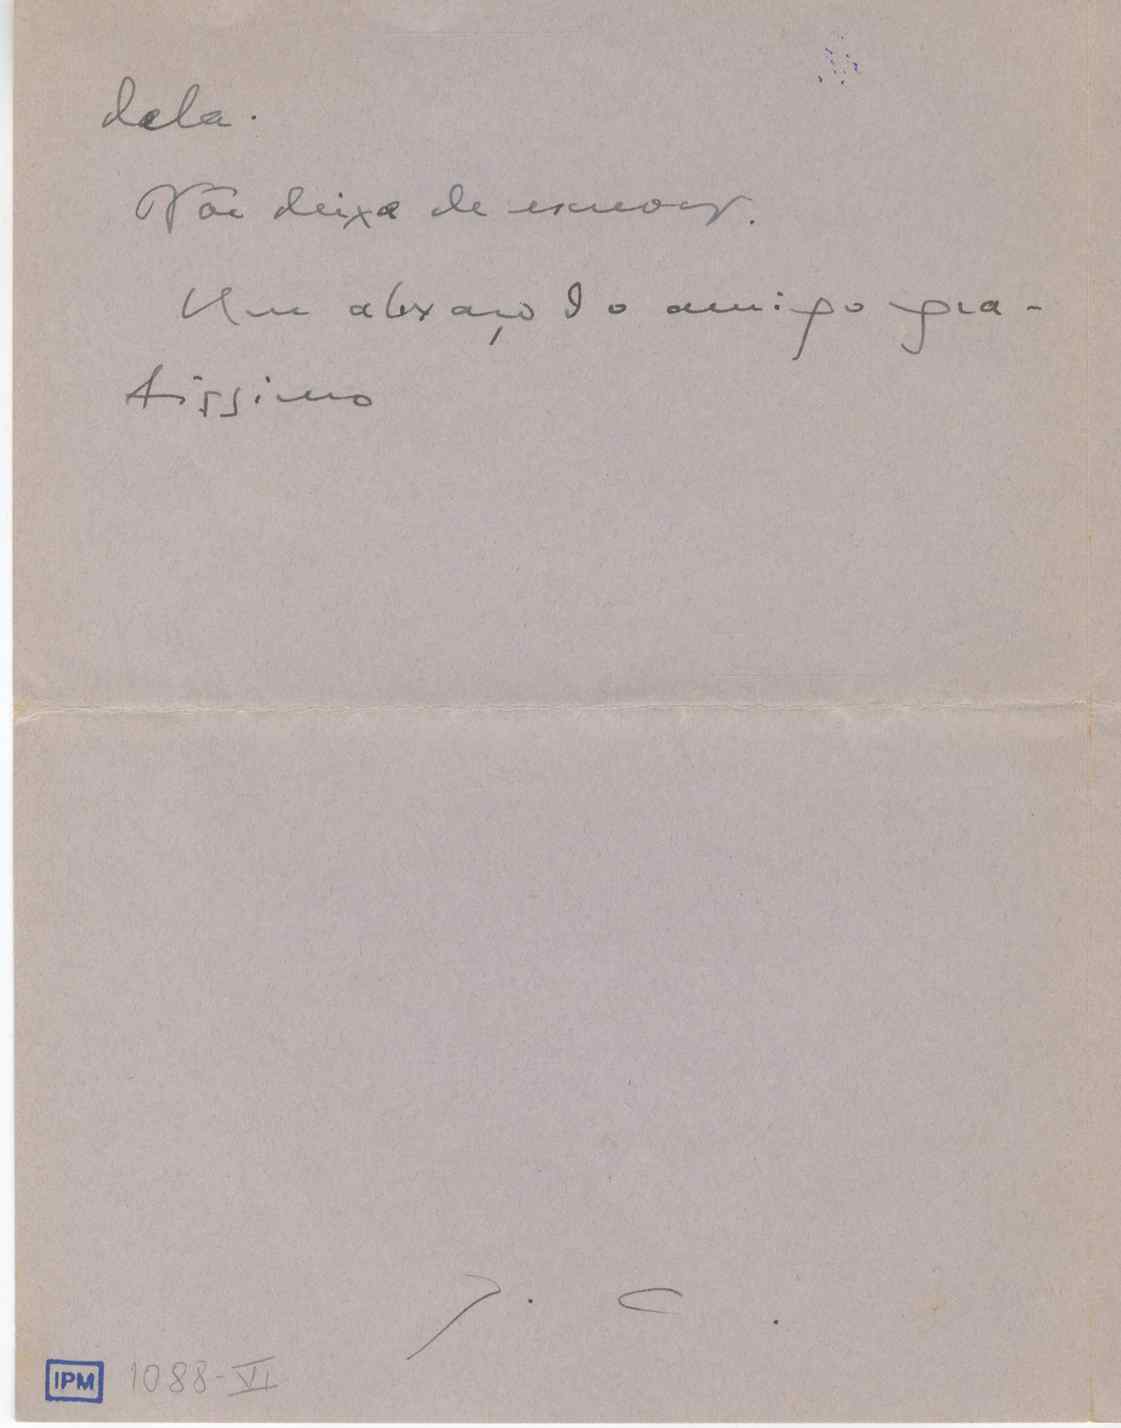 dela.
Não deixe de escrever.
Um abraço do amigo gra-
tíssimo
J. C.
IPM 1088-VI